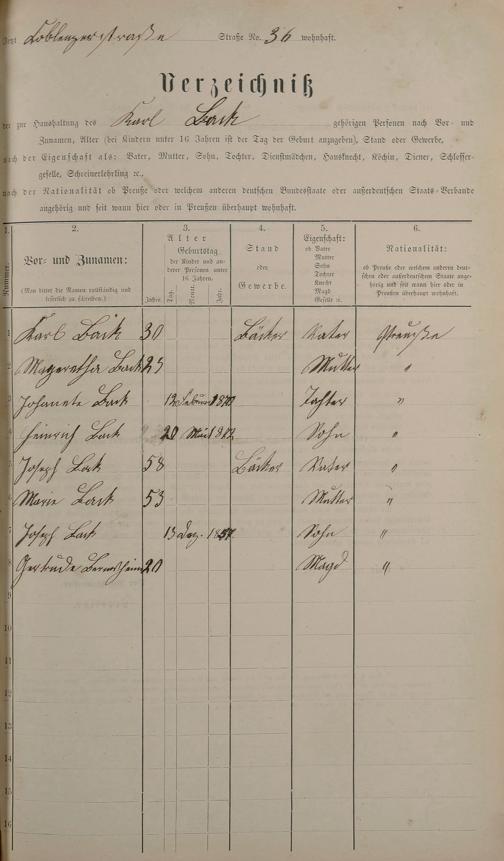 Coblenzerstraße Straße No. 36 wohnhaft.
Verzeichniß
der zur Haushaltung des Karl Back gehörigen Personen nach Vor- und
Zunamen, Alter (bei Kindern unter 16 Jahren ist der Tag der Geburt anzugeben), Stand oder Gewerbe,
nach der Eigenschaft als: Vater, Mutter, Sohn, Tochter, Dienstmädchen, Hausknecht, Köchin, Diener, Schlosser-
geselle, Schreinerlehrling ꝛc.,
nach der Nationalität ob Preuße oder welchem anderen deutschen Bundesstaate oder außerdeutschen Staats-Verbande
angehörig und seit wann hier oder in Preußen überhaupt wohnhaft.
1. 2. 3. 4. 5. 6.
Nummer.
Vor- und Zunamen:
(Man bittet die Namen vollständig und leserlich zu schreiben.)
Alter
Jahre.
Geburtstag
der Kinder und anderer Personen unter 16 Jahren.
Tag. Monat. Jahr.
Stand
oder
Gewerbe.
Eigenschaft:
ob Vater
Mutter
Sohn
Tochter
Knecht
Magd
Geselle ꝛc.
Nationalität:
ob Preuße oder welchem anderen deut-
schen oder außerdeutschem Staate ange-
hörig und seit wann hier oder in
Preußen überhaupt wohnhaft.
1 Karl Back 30 Bäcker Vater Preuße
2 Margaretha Back 25 Mutter "
3 Johanete Back 12 Februar 1870 Tochter "
4 Heinrich Back 20 1872 Sohn "
5 Joseph Back 58 Bäcker Vater "
6 Marie Back 53 Mutter "
7 Joseph Back 13 Dez. 1857 Sohn "
8 Gertrude 20 Magd "
9
10
11
12
13
14
15
16